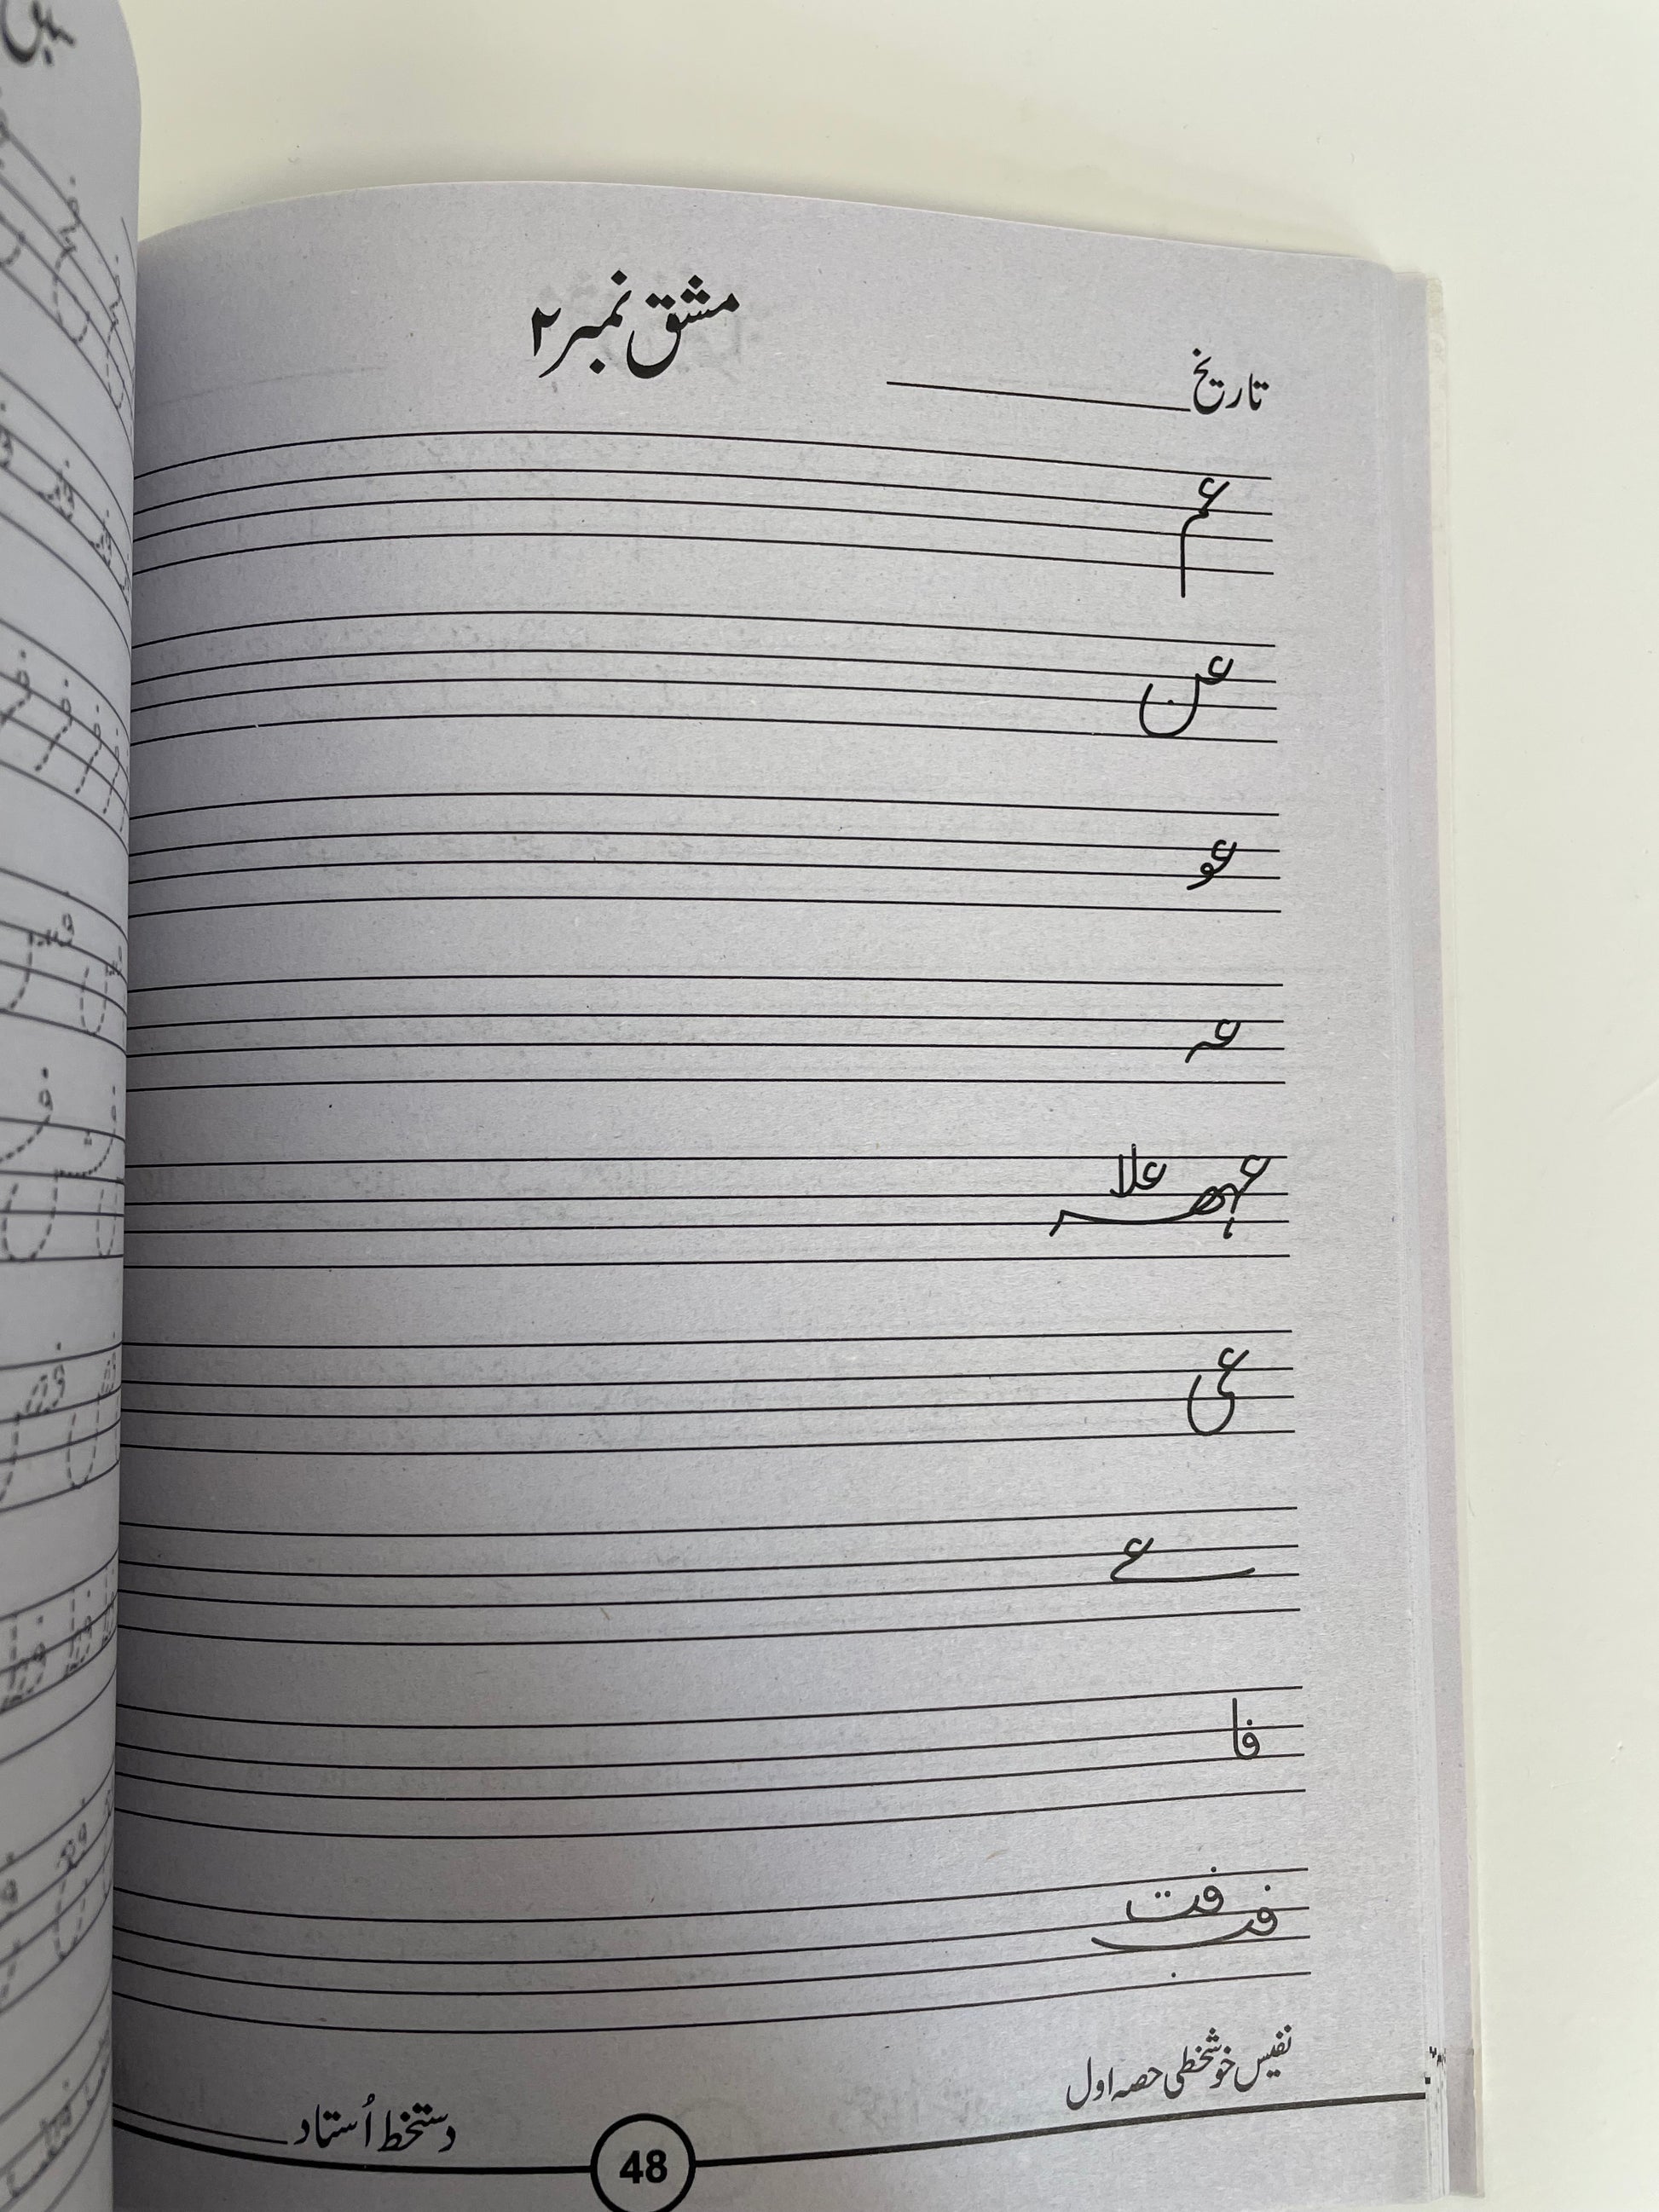 مشق نمبر ۲
تاریخ
عم
عن
عو
عہ
عہھہ علا
عی
عے
فا
فب فت
نفیس خوشخطی حصہ اول
48
دستخط اُستاد